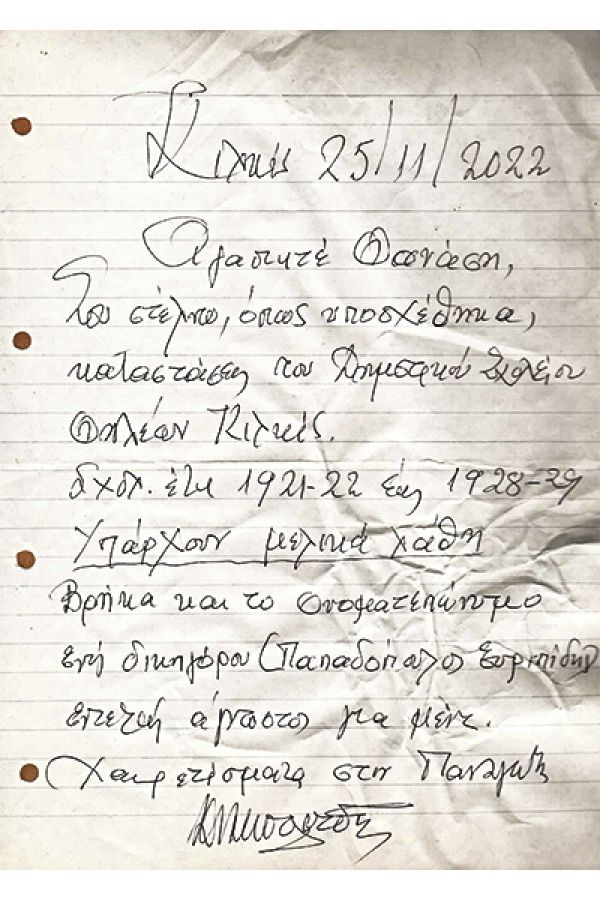 Κιλκίς 25/11/2022
Αγαπητέ Θανάση,
Σου στέλνω, όπως υποσχέθηκα,
καταστάσεις του Δημοτικού Σχολείου
Κιλκίς.
σχολ. έτη 1921-22 έως 1928-29
Υπάρχουν μερικά λάθη
Βρήκα και το ονοματεπώνυμο
ενός δικηγόρου (Παπαδόπουλος Ευριπίδης)
επιζή άγνωστος για μένα.
Χαιρετίσματα στην